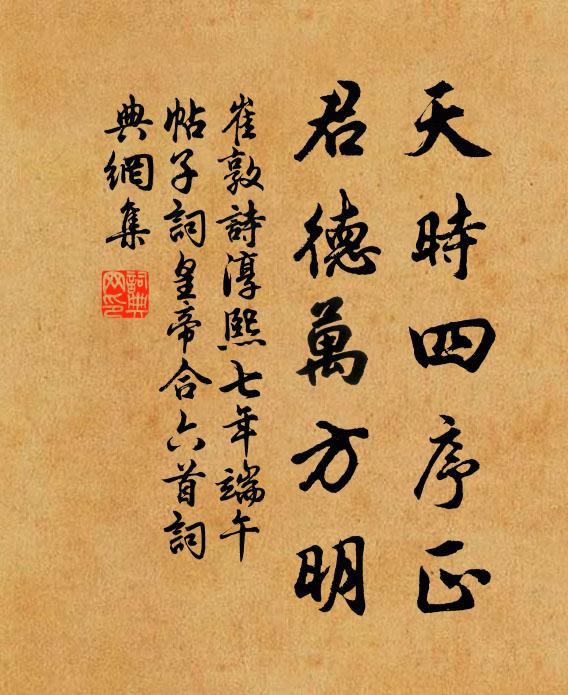 天時四序正
君德萬方明
崔敦詩淳熙七年端午
帖子詞皇帝合六首詞
典網集
詞典網印